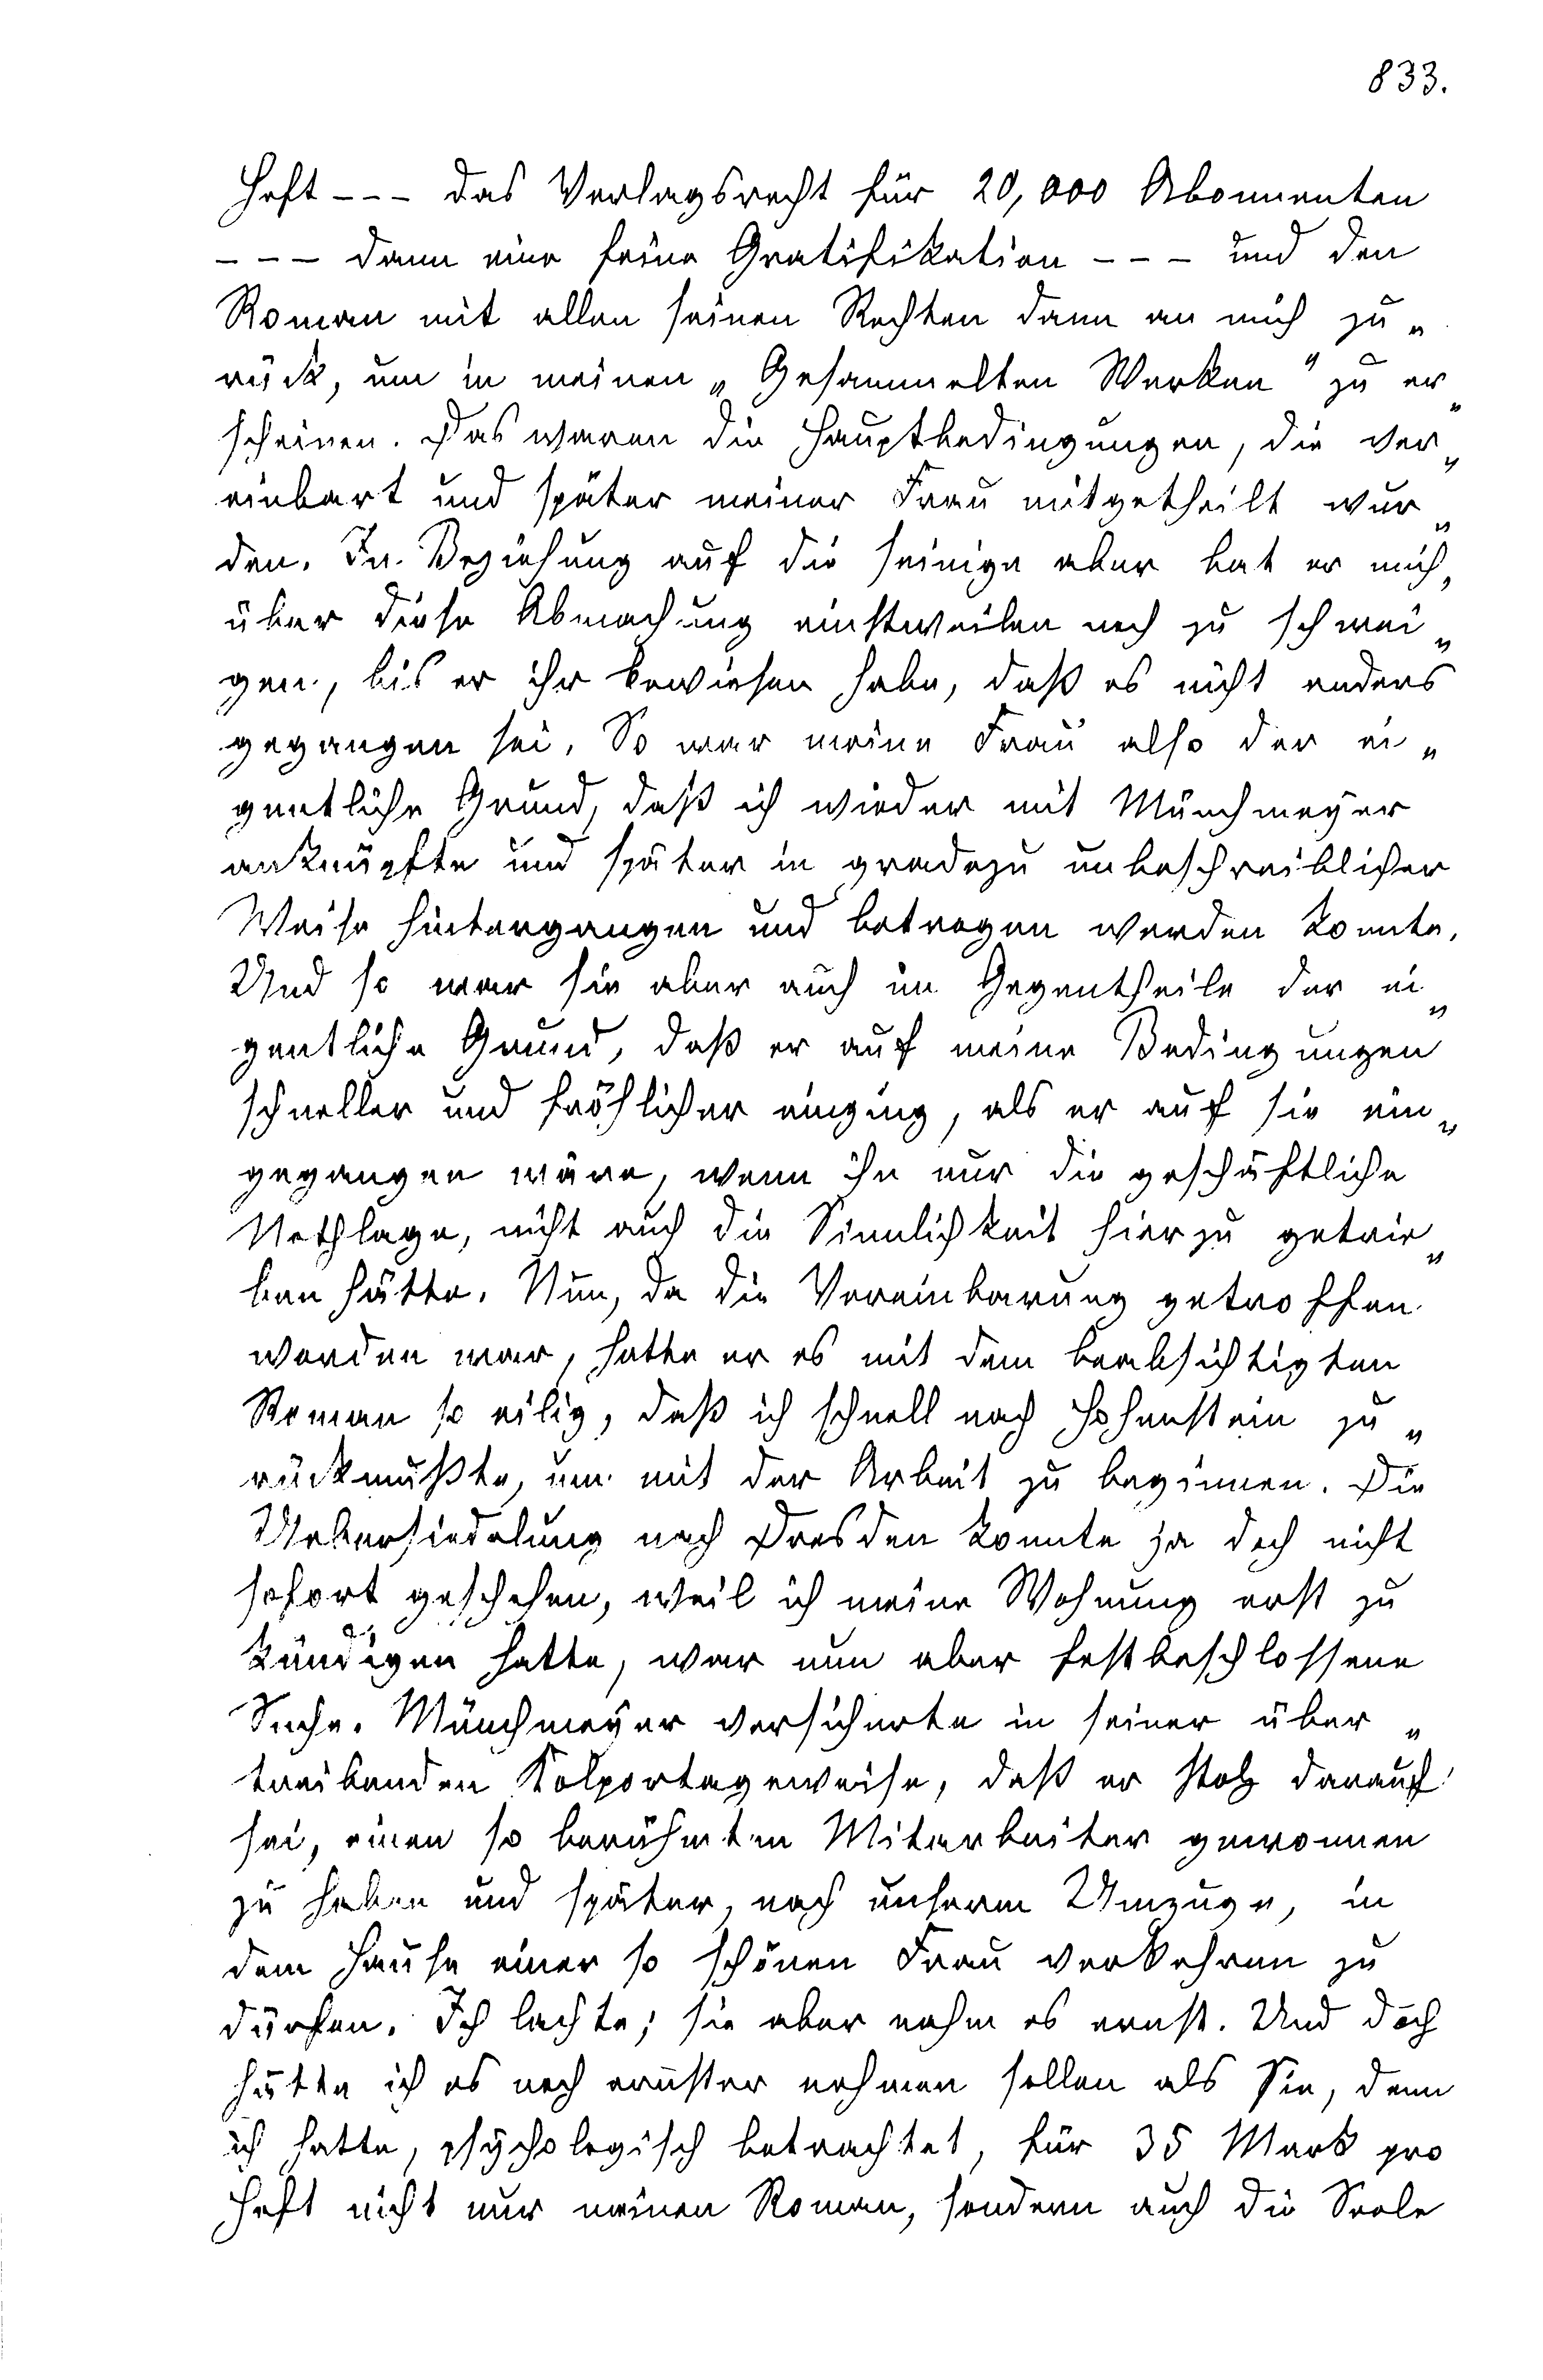 833.
Heft - - - das Verlagsrecht für 20,000 Abonnenten
- - - dann eine feine Gratifikation - - - und den
Roman mit allen seinen Rechten dann an mich zu„
rück, um in meinen „Gesammelten Werken" zu er„
scheinen. Das waren die Hauptbedingungen, die ver„
einbart und später meiner Frau mitgetheilt wur„
den. In Beziehung auf die seinige aber bat er mich,
über diese Abmachung einstweilen noch zu schwei„
gen, bis er ihr bewiesen habe, daß es nicht anders
gegangen sei. So war meine Frau also der ei„
gentliche Grund, daß ich wieder mit Münchmeyer
anknüpfte und später in gradezu unbeschreiblicher
Weise hintergangen und betrogen werden konnte.
Und so war sie aber auch im Gegentheile der ei„
gentliche Grund, daß er auf meine Bedingungen
schneller und fröhlicher einging, als er auf sie ein„
gegangen wäre, wenn ihn nur die geschäftliche
Nothlage, nicht auch die Sinnlichkeit hierzu getrie„
ben hätte. Nun, da die Vereinbarung getroffen
worden war, hatte er es mit dem beabsichtigten
Roman so eilig, daß ich schnell nach Hohenstein zu„
rückmußte, um mit der Arbeit zu beginnen. Die
Uebersiedelung nach Dresden konnte ja doch nicht
sofort geschehen, weil ich meine Wohnung erst zu
kündigen hatte, war nun aber festbeschlossene
Sache. Münchmeyer versicherte in seiner über„
treibenden Kolportageweise, daß er stolz darauf
sei, einen so berühmten Mitarbeiter gewonnen
zu haben und später, nach unserm Umzuge, in
dem Hause einer so schönen Frau verkehren zu
dürfen. Ich lachte; sie aber nahm es ernst. Und doch
hätte ich es noch ernster nehmen sollen als Sie, denn
ich hatte, psychologisch betrachtet, für 35 Mark pro
Heft nicht nur meinen Roman, sondern auch die Seele